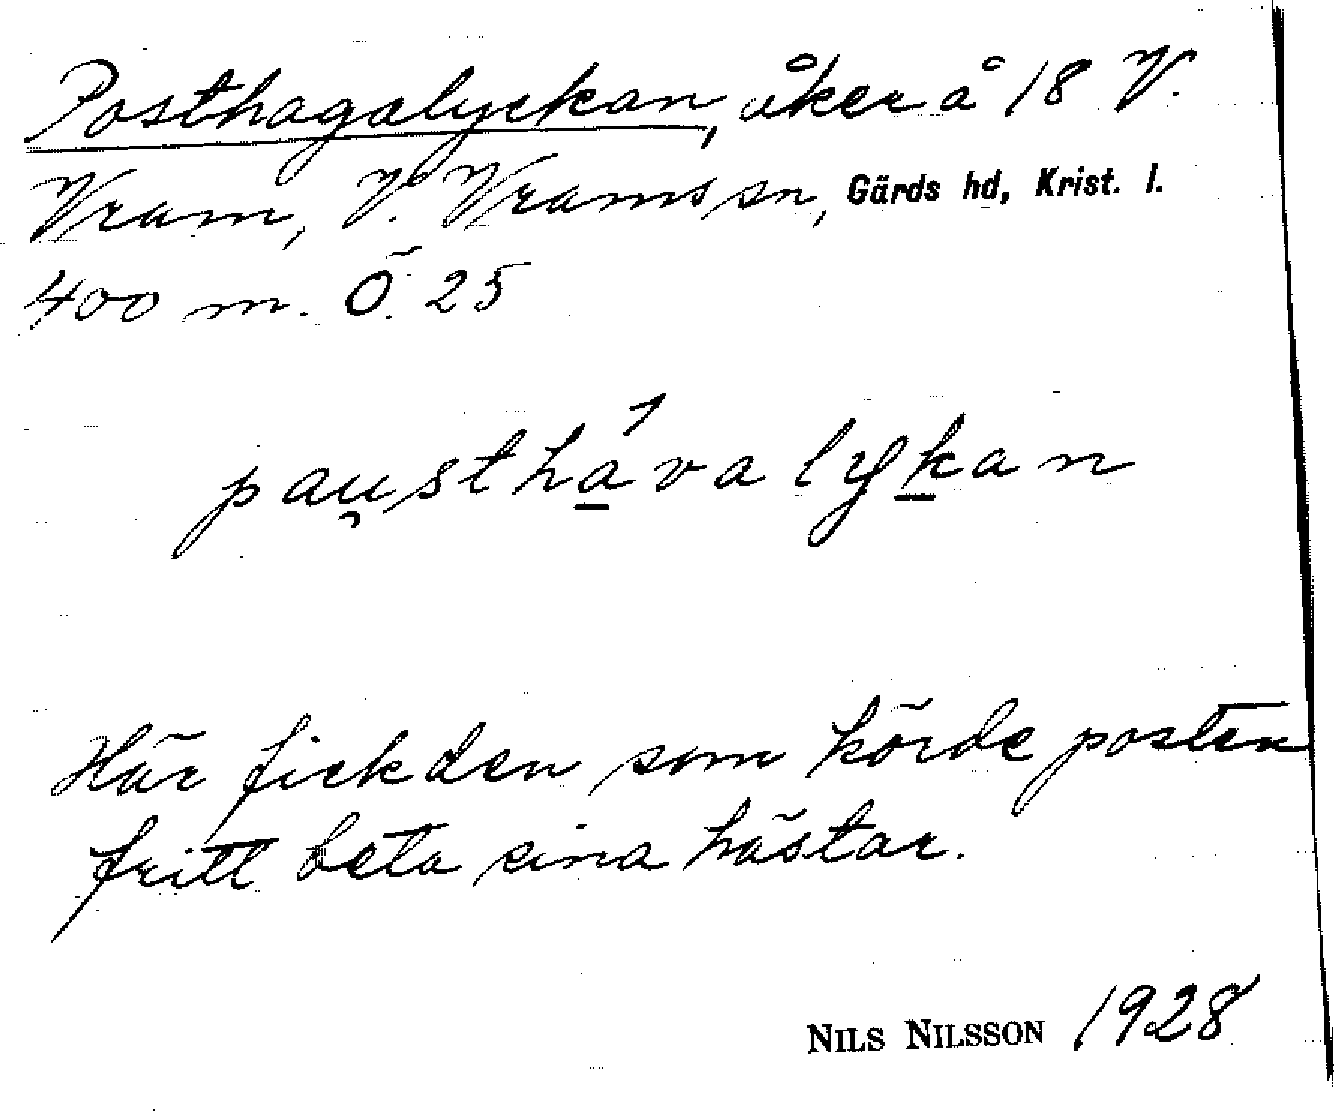 Posthagalyckan, åker å 18 V.
Vram, V. Vrams sn, Gärds hd, Krist. l.
400 m. Ö. 25
pau̯stha̱´valyḵan
Här fick den som körde posten
fritt beta sina hästar.
NILS NILSSON 1928